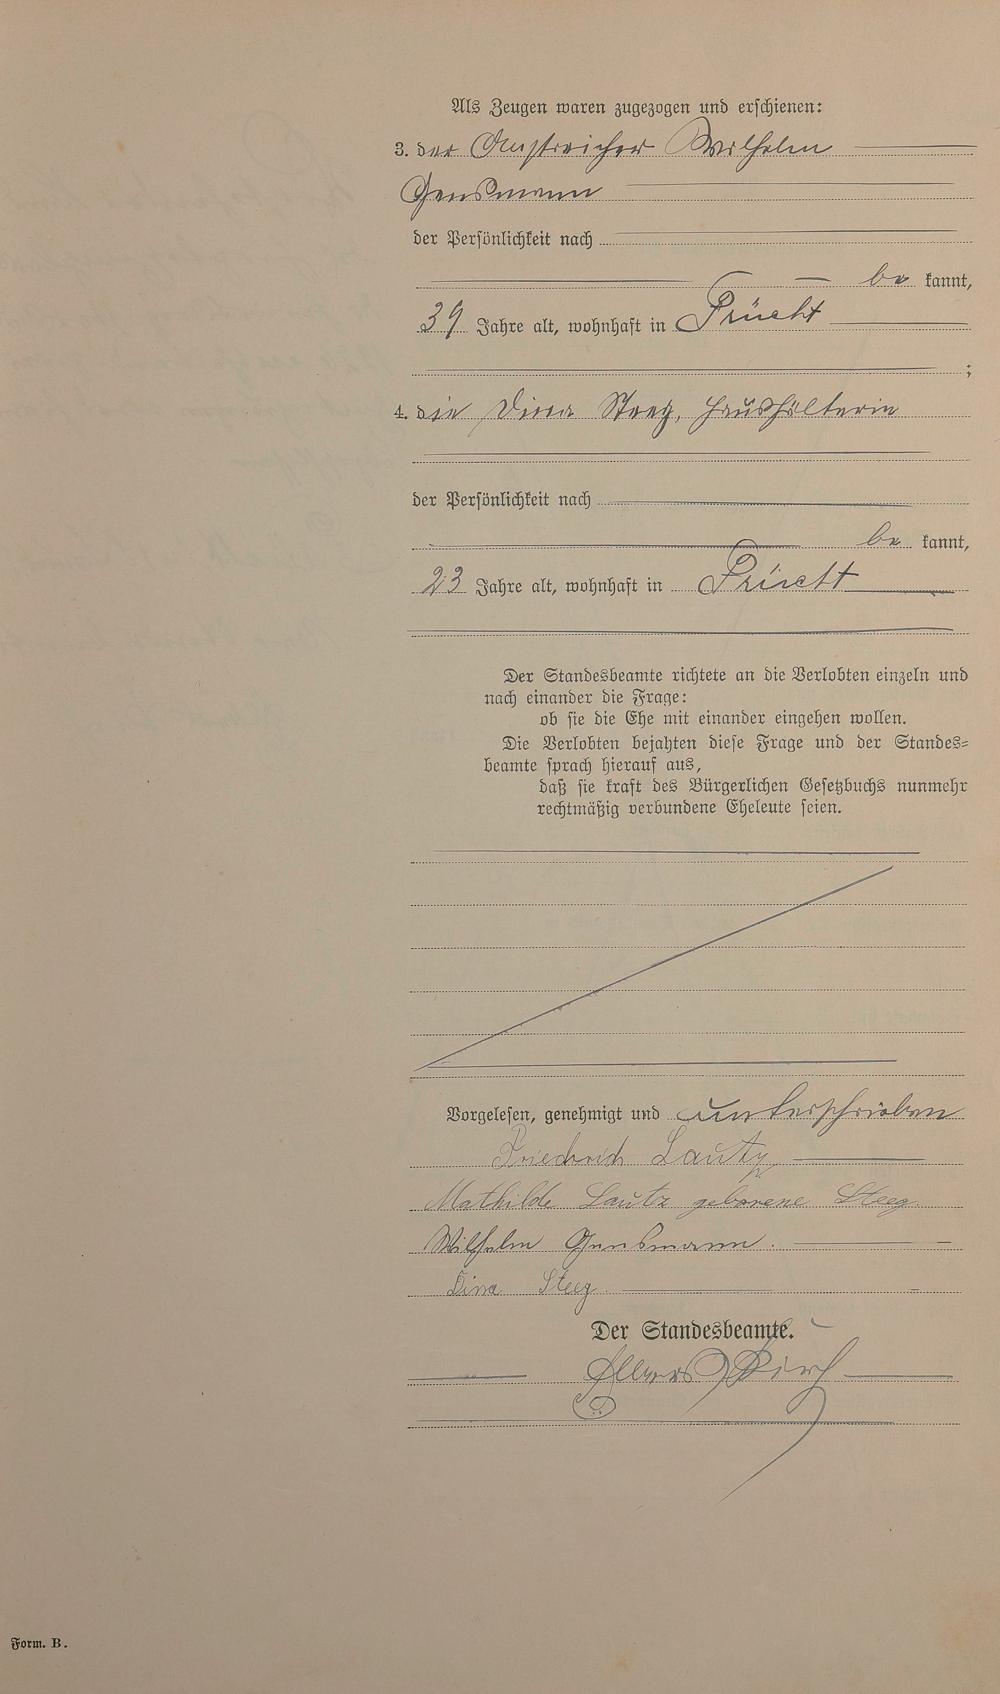 Als Zeugen waren zugezogen und erschienen:
3. der Anstreicher Wilhelm
Gensmann
der Persönlichkeit nach
be kannt,
39 Jahre alt, wohnhaft in Frücht
;
4. die Dina Steeg, Haushälterin
der Persönlichkeit nach
be kannt,
23 Jahre alt, wohnhaft in Frücht
Der Standesbeamte richtete an die Verlobten einzeln und
nach einander die Frage:
ob sie die Ehe mit einander eingehen wollen.
Die Verlobten bejahten diese Frage und der Standes=
beamte sprach hierauf aus,
daß sie kraft des Bürgerlichen Gesetzbuchs nunmehr
rechtmäßig verbundene Eheleute seien.
Vorgelesen, genehmigt und unterschrieben
Friedrich Lautz
Mathilde Lautz geborene Steeg.
Wilhelm Gensmann.
Dina Steeg
Der Standesbeamte.
Form. B.